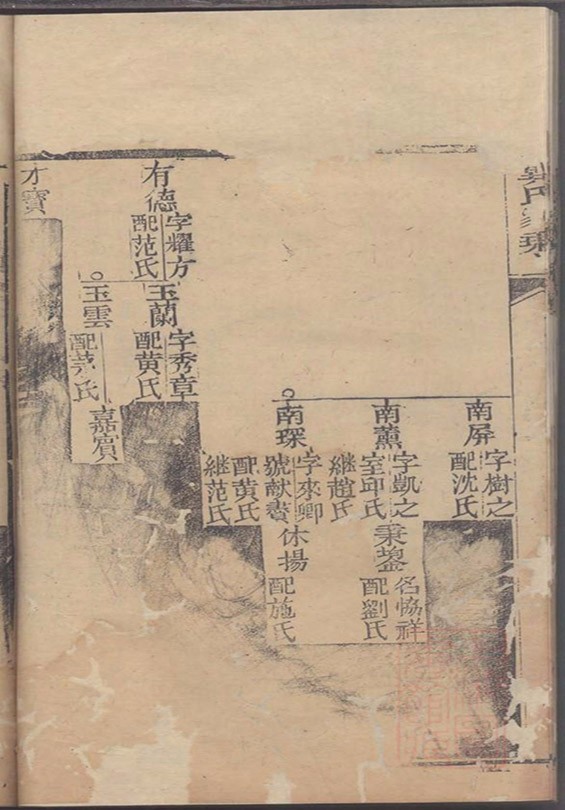 氏家乘
南屏
字樹之
配沈氏
南薰
字凱之
室邱氏
繼趙氏
秉鋆
名協祥
配劉氏
南琛
字來卿
號献賚
配黄氏
継范氏
休揚
配施氏
有德
字耀方
配范氏
玉蘭
字秀章
配黄氏
玉雲
配范氏
嘉賓
才寳